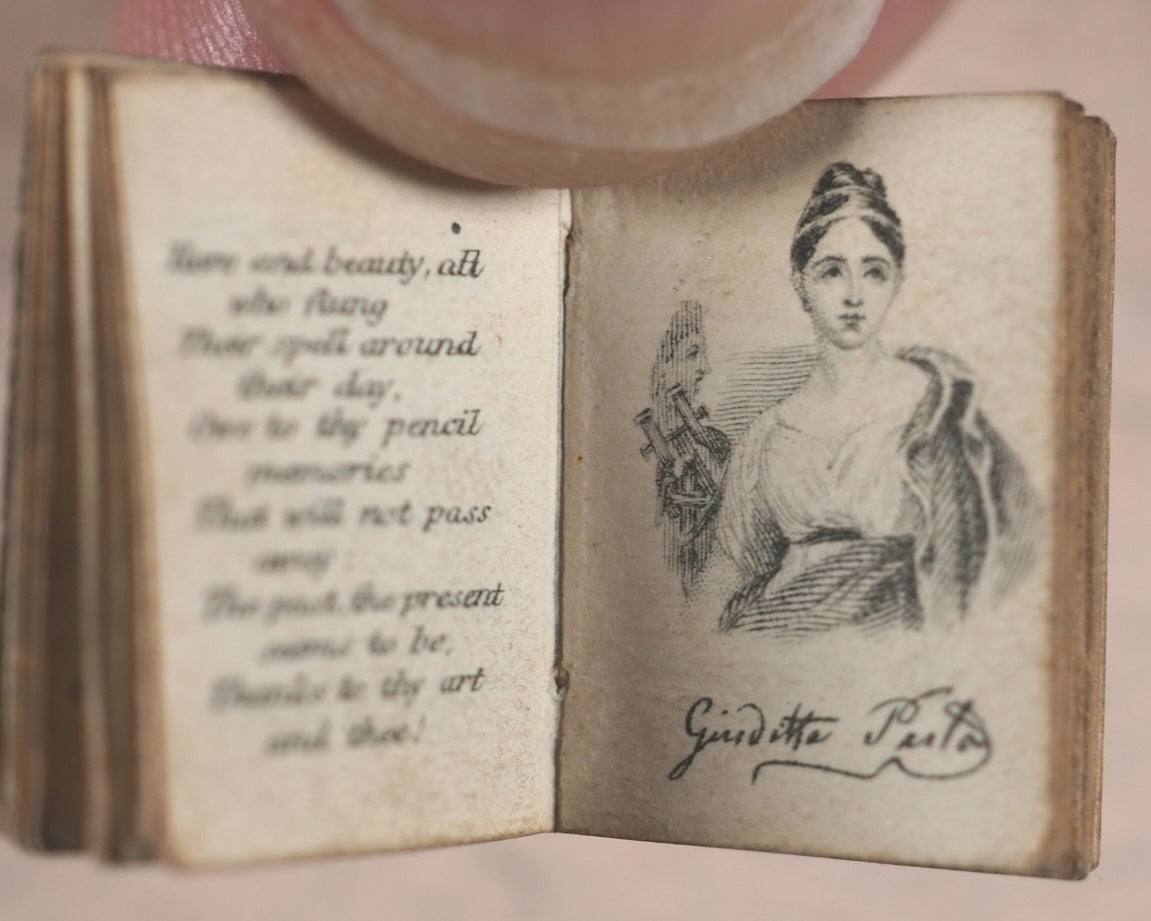 and beauty, all
who flung
Their spell around
their day,
Owe to thy pencil
memories
That will not pass
away:
The past, the present
seems to be,
Thanks to thy art
and thee!
Giuditta Pasta